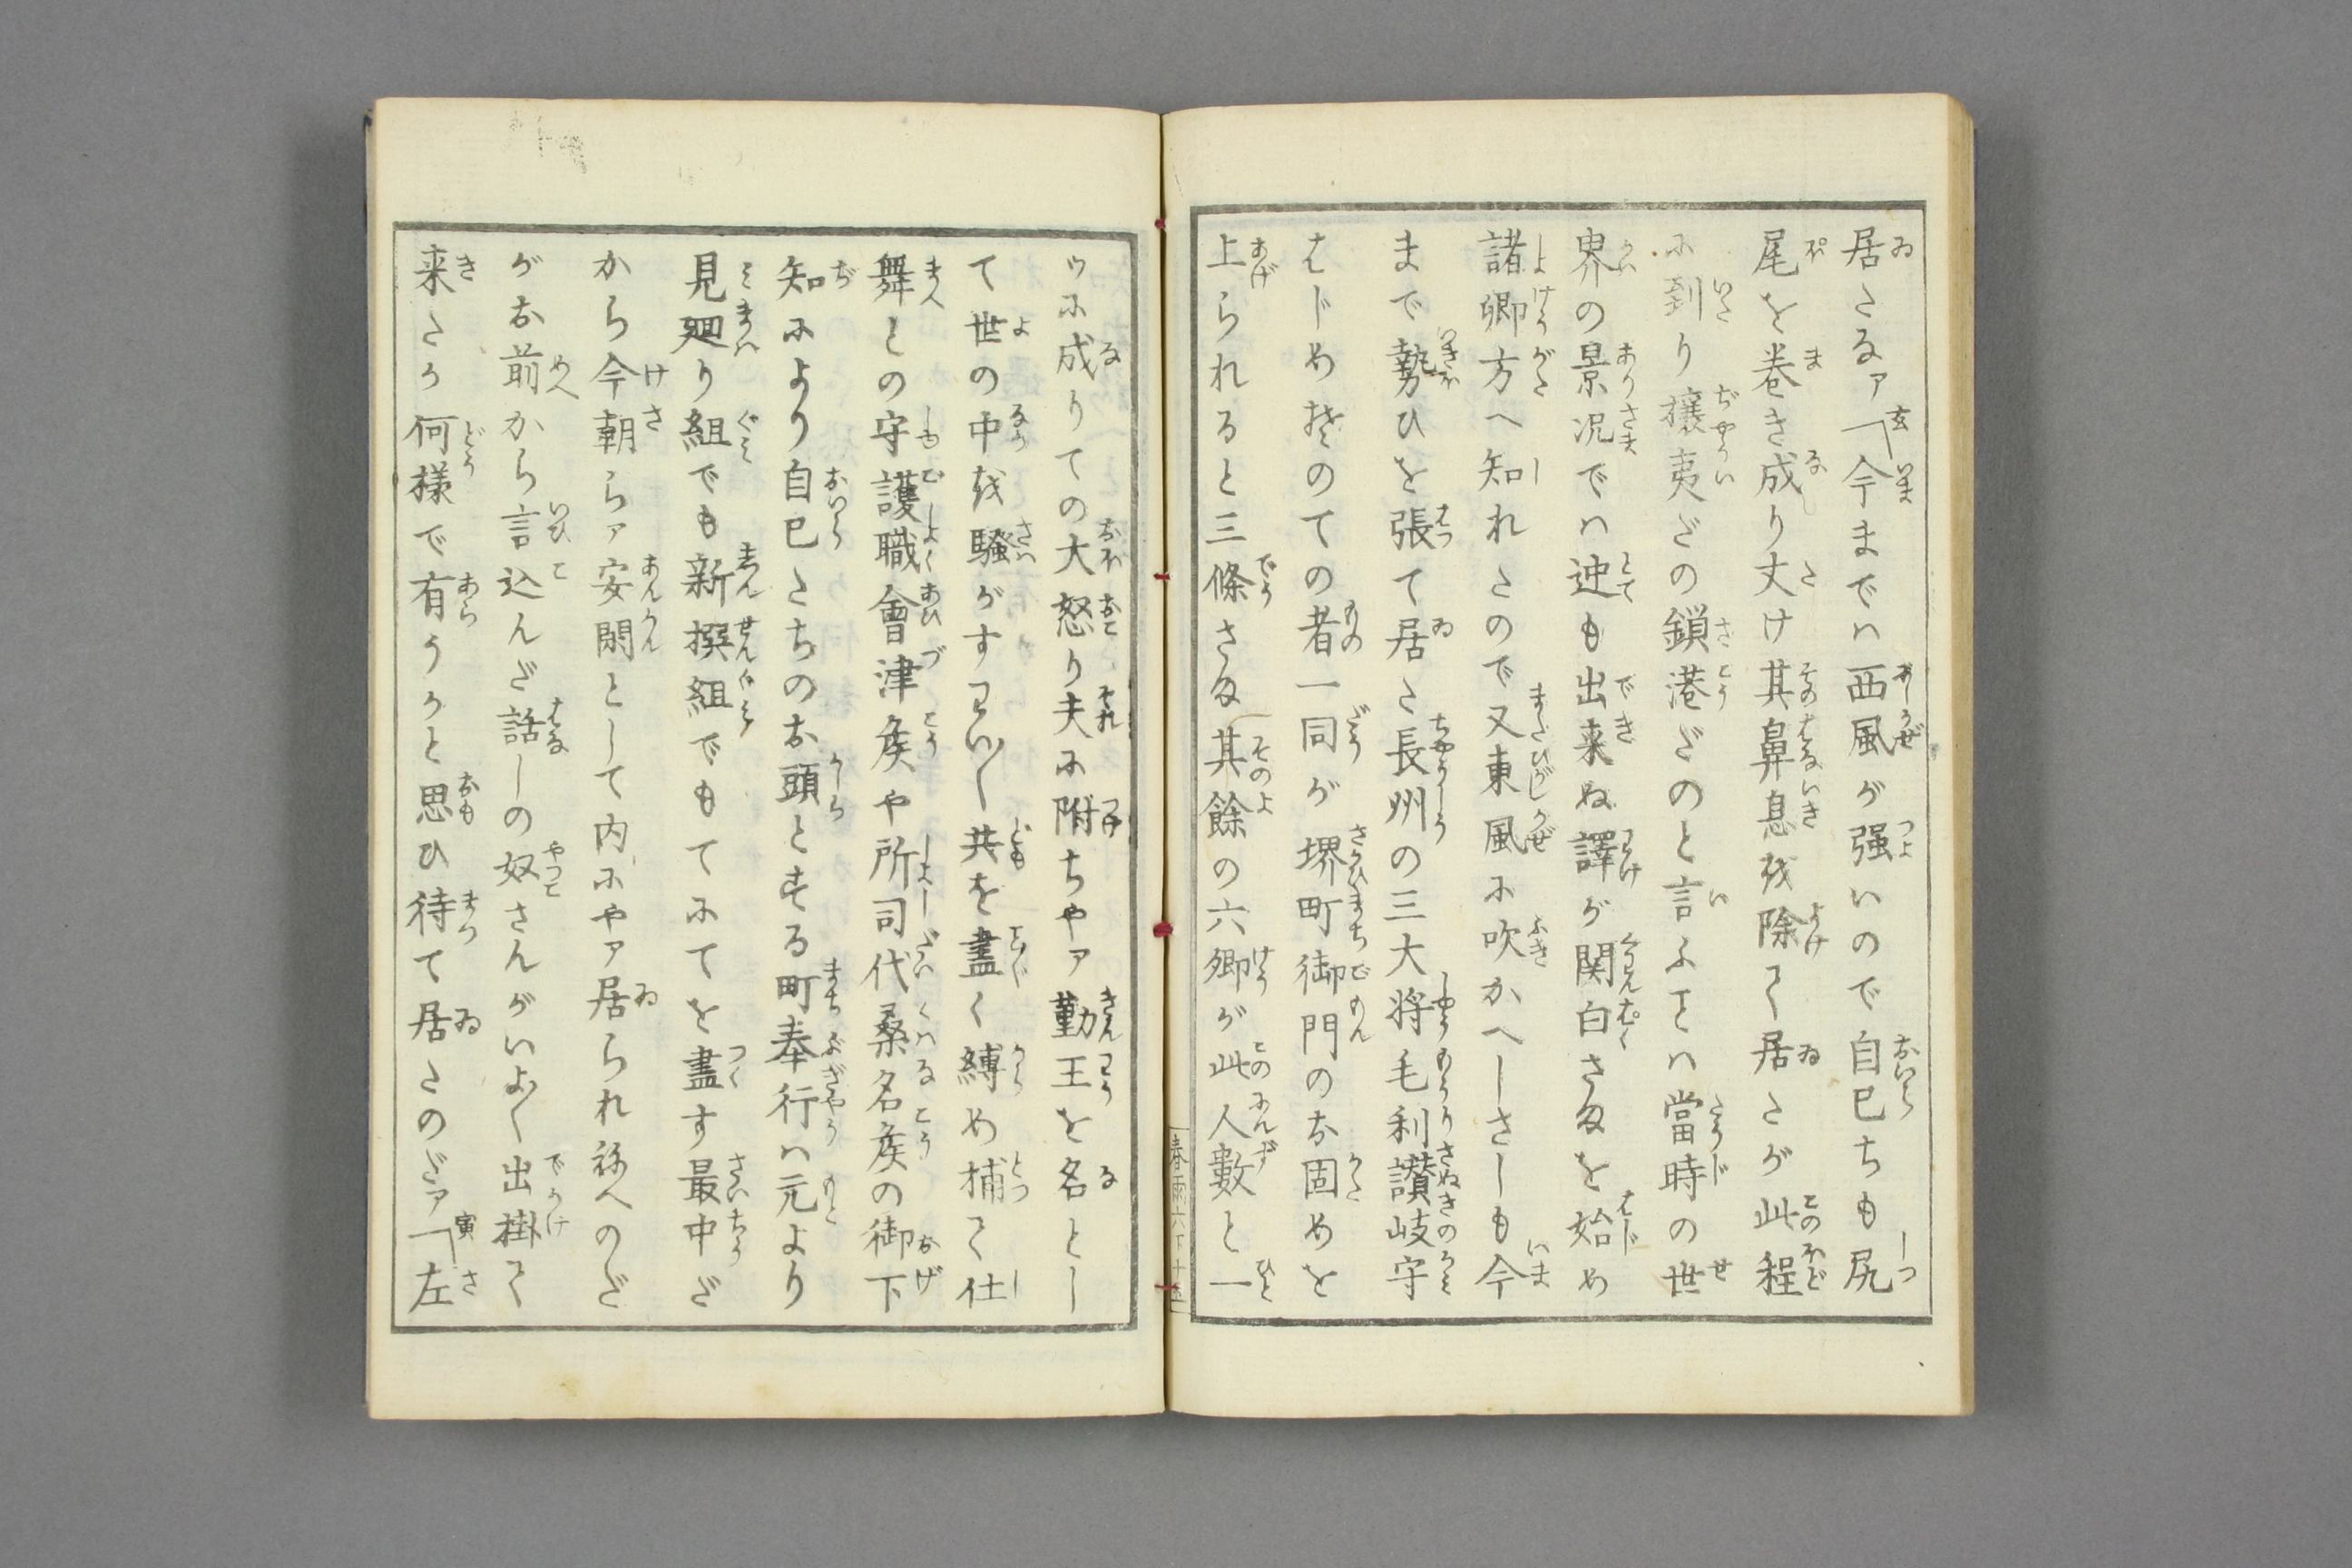 居たなァ 玄「今までハ西風が强いので自己ちも尻
尾を巻き成り丈け其鼻息を除けて居たが此程
に到り攘夷だの鎖港だのと言ふことハ當時の世
界の景況でハ迚も出来ぬ譯が関白さまを始め
諸卿方へ知れたので又東風に吹かへしさしも今
まで勢ひを張て居た長州の三大将毛利讃岐守
はじめ其のての者一同が堺町御門のお固めを
上られると三條さま其餘の六卿が此人數と一
ッに成りての大怒り夫に附ちやァ勤王を名とし
て世の中を騒がすわい〳〵共を盡く縛め捕て仕
舞との守護職會津矦や所司代桑名矦の御下
知により自己たちのお頭とする町奉行ハ元より
見廻り組でも新撰組でもてにてを盡す最中だ
から今朝らァ安閑として内にやァ居られ祢へのだ
がお前から言込んだ話しの奴さんがいよ〳〵出掛て
来たか何様で有うかと思ひ待て居たのだァ 寅「左
春雨六下十五